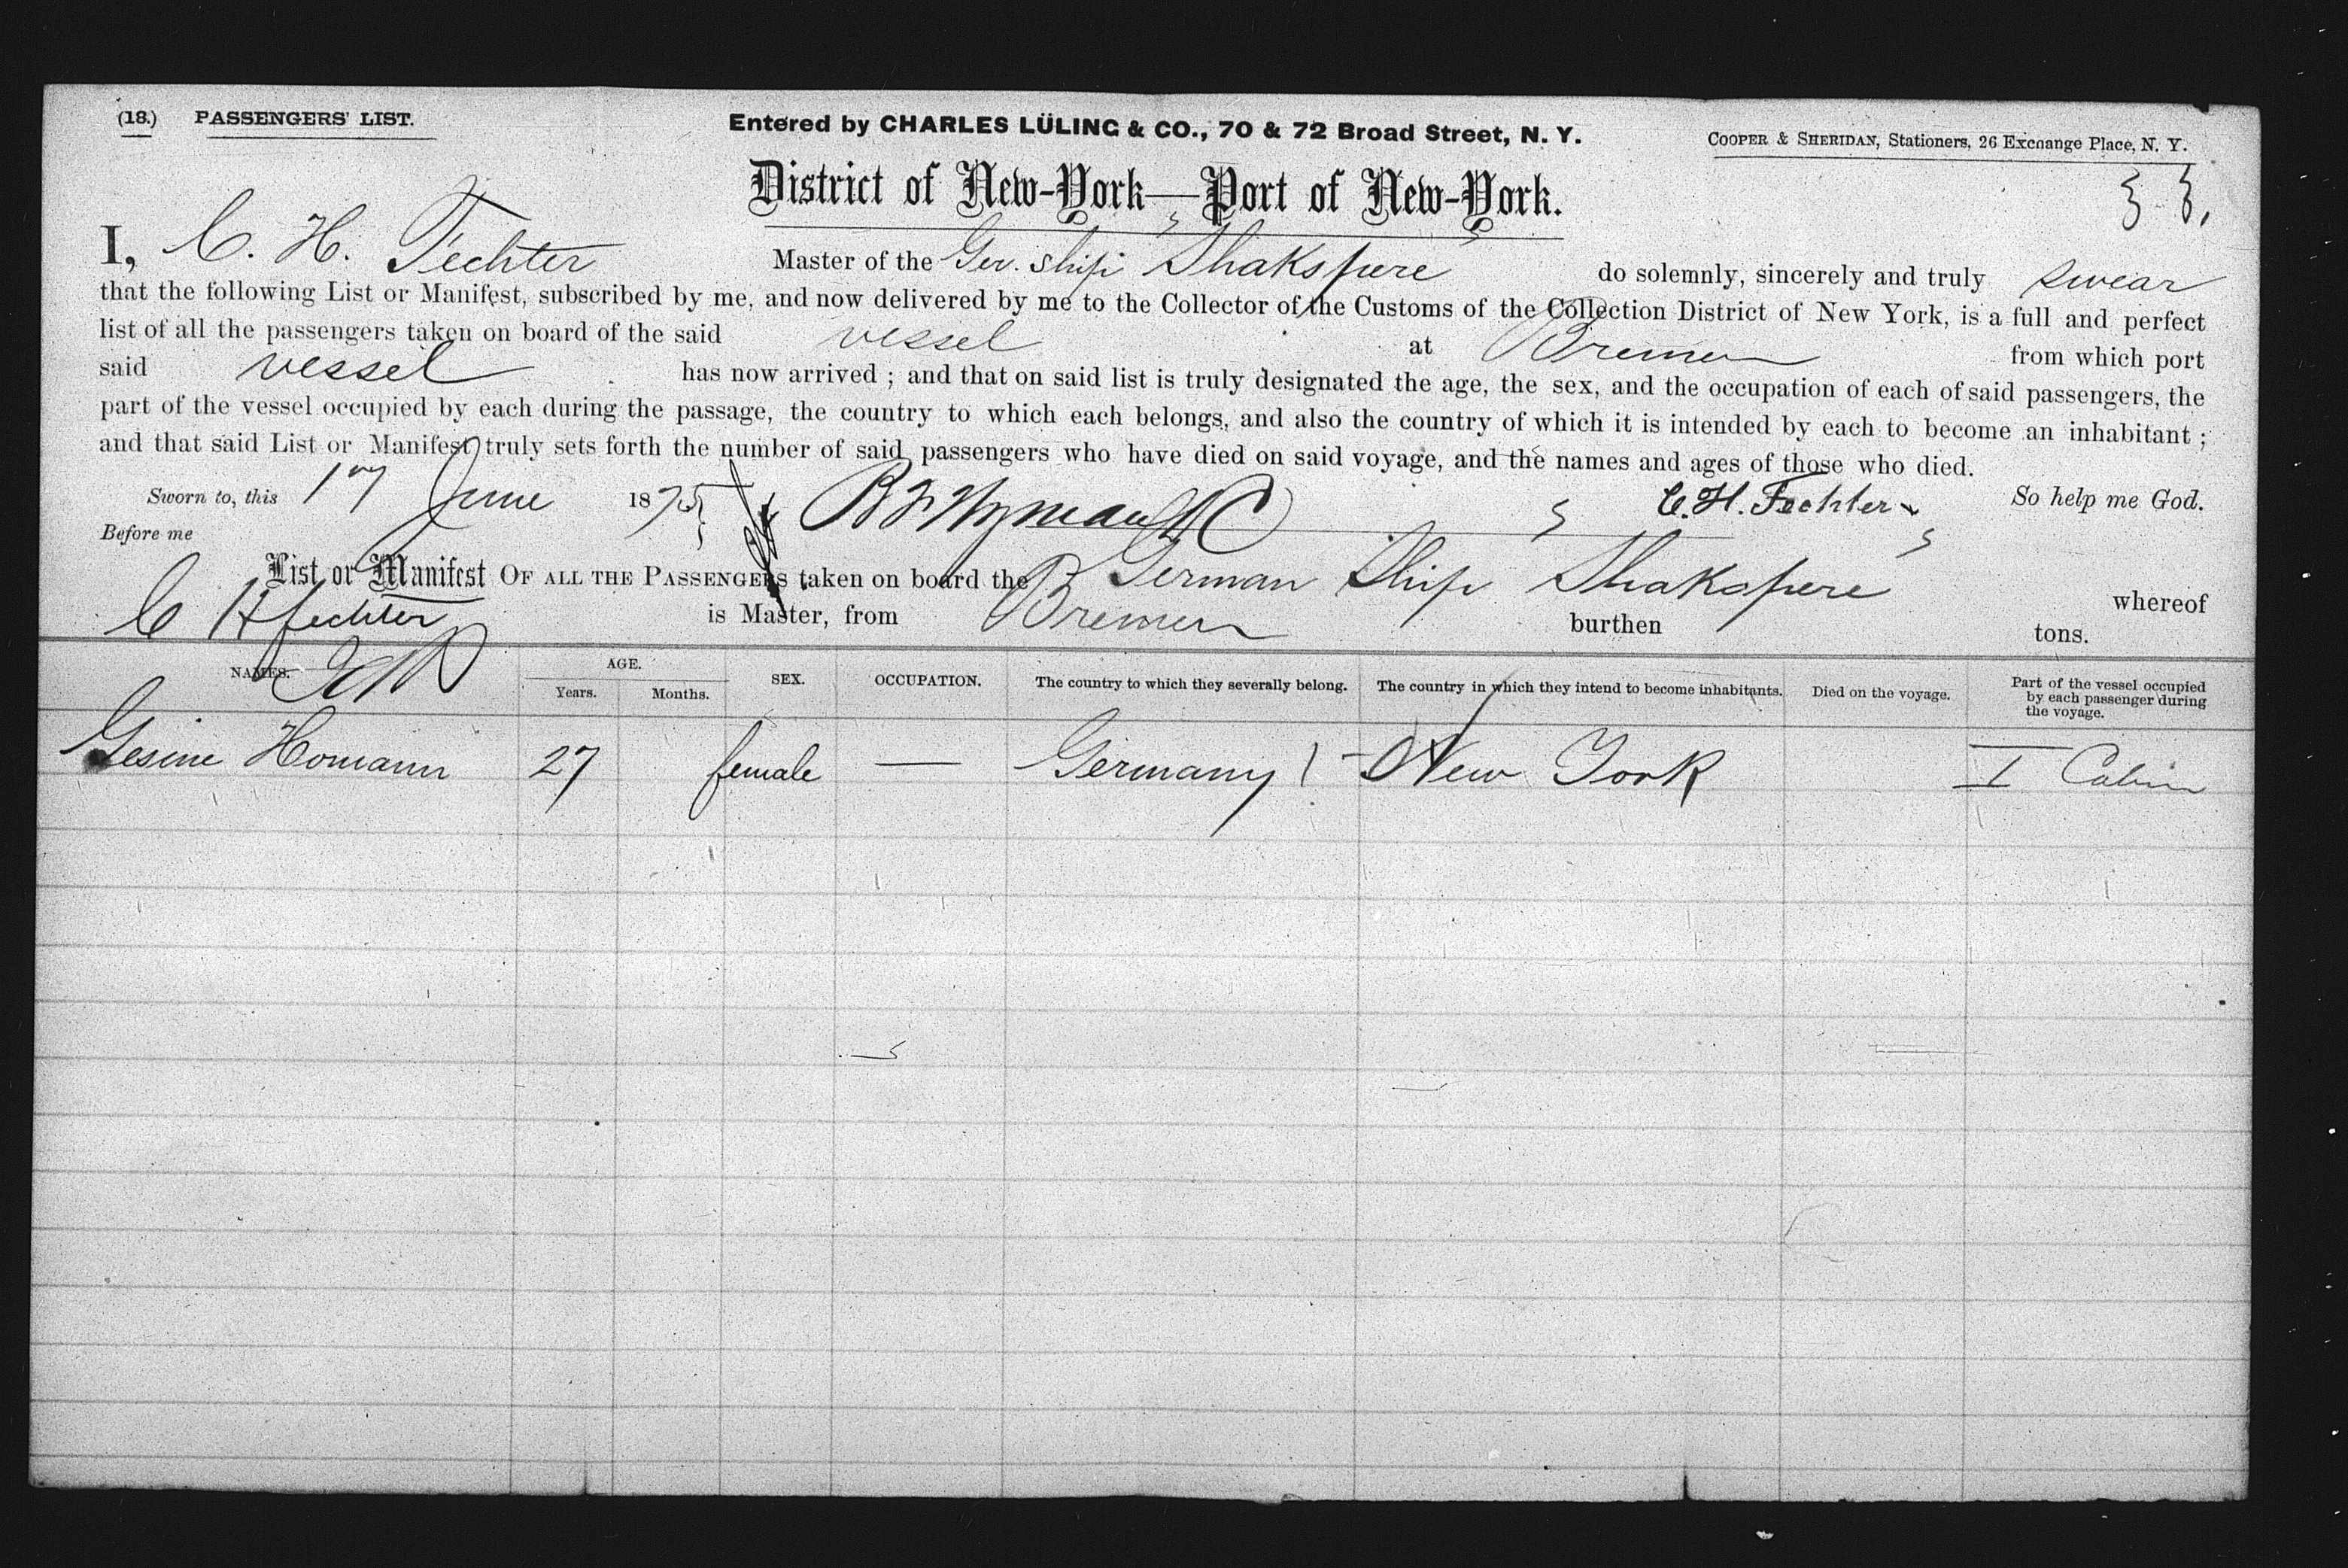 (18.) PASSENGERS' LIST. Entered by CHARLES LÜLING & CO., 70 & 72 Broad Street, N. Y. COOPER & SHERIDAN, Stationers, 26 Exchange Place, N. Y.
District of New-York—Port of New-York.
I, C. H. Fechter Master of the Ger. ship Shakspere do solemnly, sincerely and truly swear
that the following List or Manifest, subscribed by me, and now delivered by me to the Collector of the Customs of the Collection District of New York, is a full and perfect
list of all the passengers taken on board of the said vessel at Bremen from which port
said vessel has now arrived ; and that on said list is truly designated the age, the sex, and the occupation of each of said passengers, the
part of the vessel occupied by each during the passage, the country to which each belongs, and also the country of which it is intended by each to become an inhabitant ;
and that said List or Manifest truly sets forth the number of said passengers who have died on said voyage, and the names and ages of those who died.
Sworn to, this 17 June 1875 C. H. Fechter So help me God.
Before me
List or Manifest OF ALL THE PASSENGERS taken on board the German Ship Shakspere whereof
C H Fechter is Master, from Bremen burthen tons.
NAMES. AGE. Years. Months. SEX. OCCUPATION. The country to which they severally belong. The country in which they intend to become inhabitants. Died on the voyage. Part of the vessel occupied by each passenger during the voyage.
Gesine Homann 27 female — Germany New York I Cabin